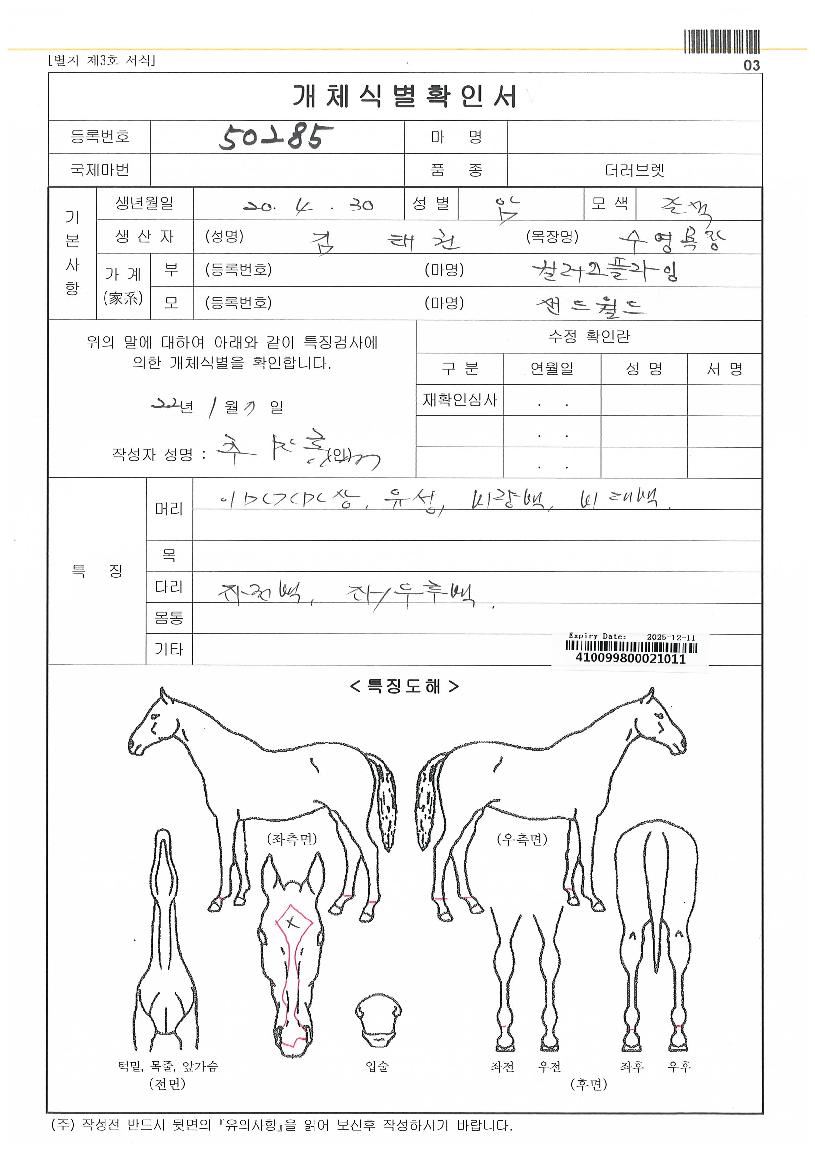 03
[별지 제3호 서식]
개체식별확인서
등록번호 50285 마 명
국제마번 품 종 더러브렛
기본사항
생년월일 20. 4. 30 성 별 암 모 색
생 산 자 (성명) 김 태 천 (목장명) 수영목장
가 계 (家系) 부 (등록번호) (마명) 컬러즈플라잉
모 (등록번호) (마명) 샌드월드
위의 말에 대하여 아래와 같이 특징검사에
의한 개체식별을 확인합니다.
22년 1월 일
작성자 성명 : (인)
수정 확인란
구 분 연월일 성 명 서 명
재확인심사 . .
. .
. .
특 징
머리 유성, 비량백,
목
다리 좌전백, 좌/우후백.
몸통
기타
Expiry Date: 2025-12-11
410099800021011
< 특징도해 >
(좌측면) (우측면)
턱밑, 목줄, 앞가슴 입술 좌전 우전 좌후 우후
(전면) (후면)
(주) 작성전 반드시 뒷면의 『유의사항』을 읽어 보신후 작성하시기 바랍니다.